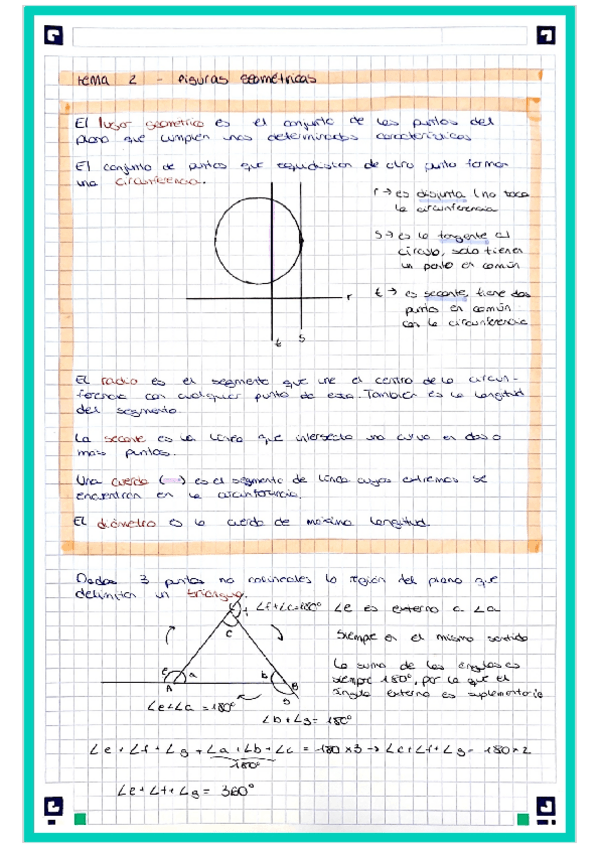 Tema 2 - Figuras geométricas
El lugar geométrico es el conjunto de los puntos del
plano que cumplen unas determinadas características
El conjunto de puntos que equidistan de otro punto forman
una circunferencia.
r → es disjunta (no toca
la circunferencia
s → es la tangente al
círculo, solo tienen
un punto en común
t → es secante, tiene dos
puntos en común
con la circunferencia
r
t s
El radio es el segmento que une el centro de la circun-
ferencia con cualquier punto de esta. También es la longitud
del segmento.
La secante es la línea que intersecta una curva en dos o
mas puntos.
Una cuerda (   ) es el segmento de línea cuyos extremos se
encuentran en la circunferencia.
El diámetro es la cuerda de máxima longitud.
Dados 3 puntos no la región del plano que
delimitan un triangulo.
∠f+∠c=180° ∠e es externo a ∠a
C f
c
Siempre en el mismo sentido
La suma de los ángulos es
siempre 180°, por lo que el
ángulo externo es suplementario
e a b B
A g
∠e+∠a = 180°
∠b+∠g = 180°
∠e + ∠f + ∠g + ∠a + ∠b + ∠c = 180 x3 → ∠e+∠f+∠g = 180 x 2
180°
∠e + ∠f + ∠g = 360°